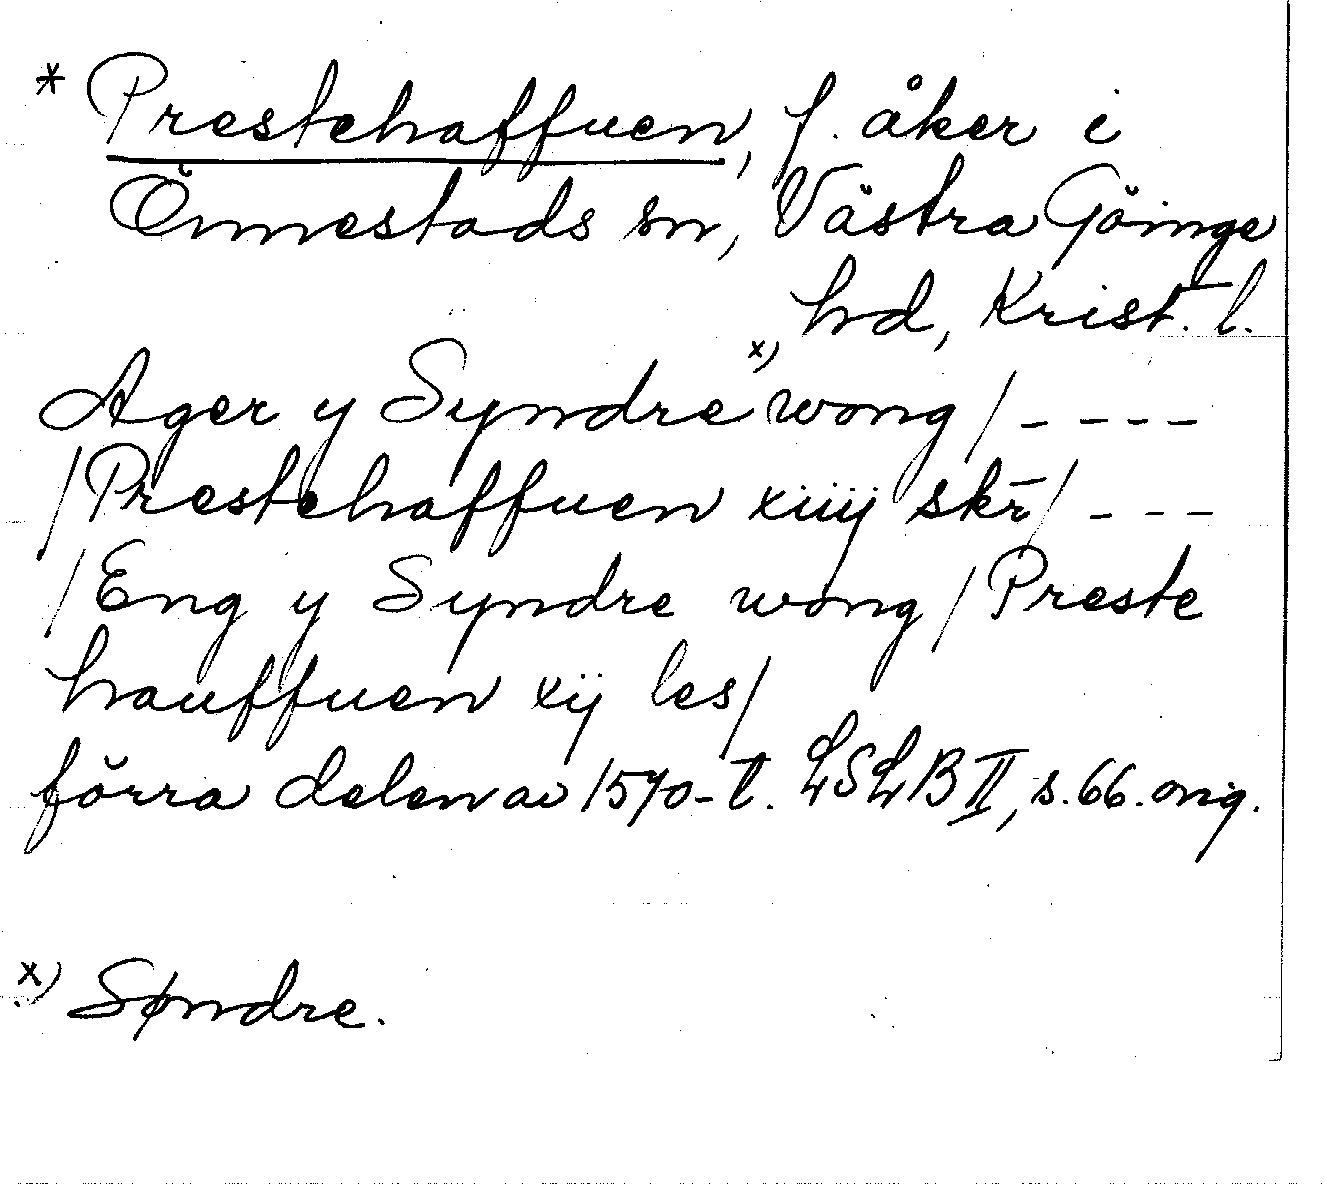 * Prestehaffuen, f. åker i
Önnestads sn, Västra Göinge
hd, Krist. l.
Ager y Syndre x) wong / - - - -
/ Prestehaffuen xiiij skr̄ / - - -
/ Eng y Syndre wong / Preste
hauffuen xij les /
förra delen av 1570-t. LSLB II, s. 66. orig.
x) Søndre.